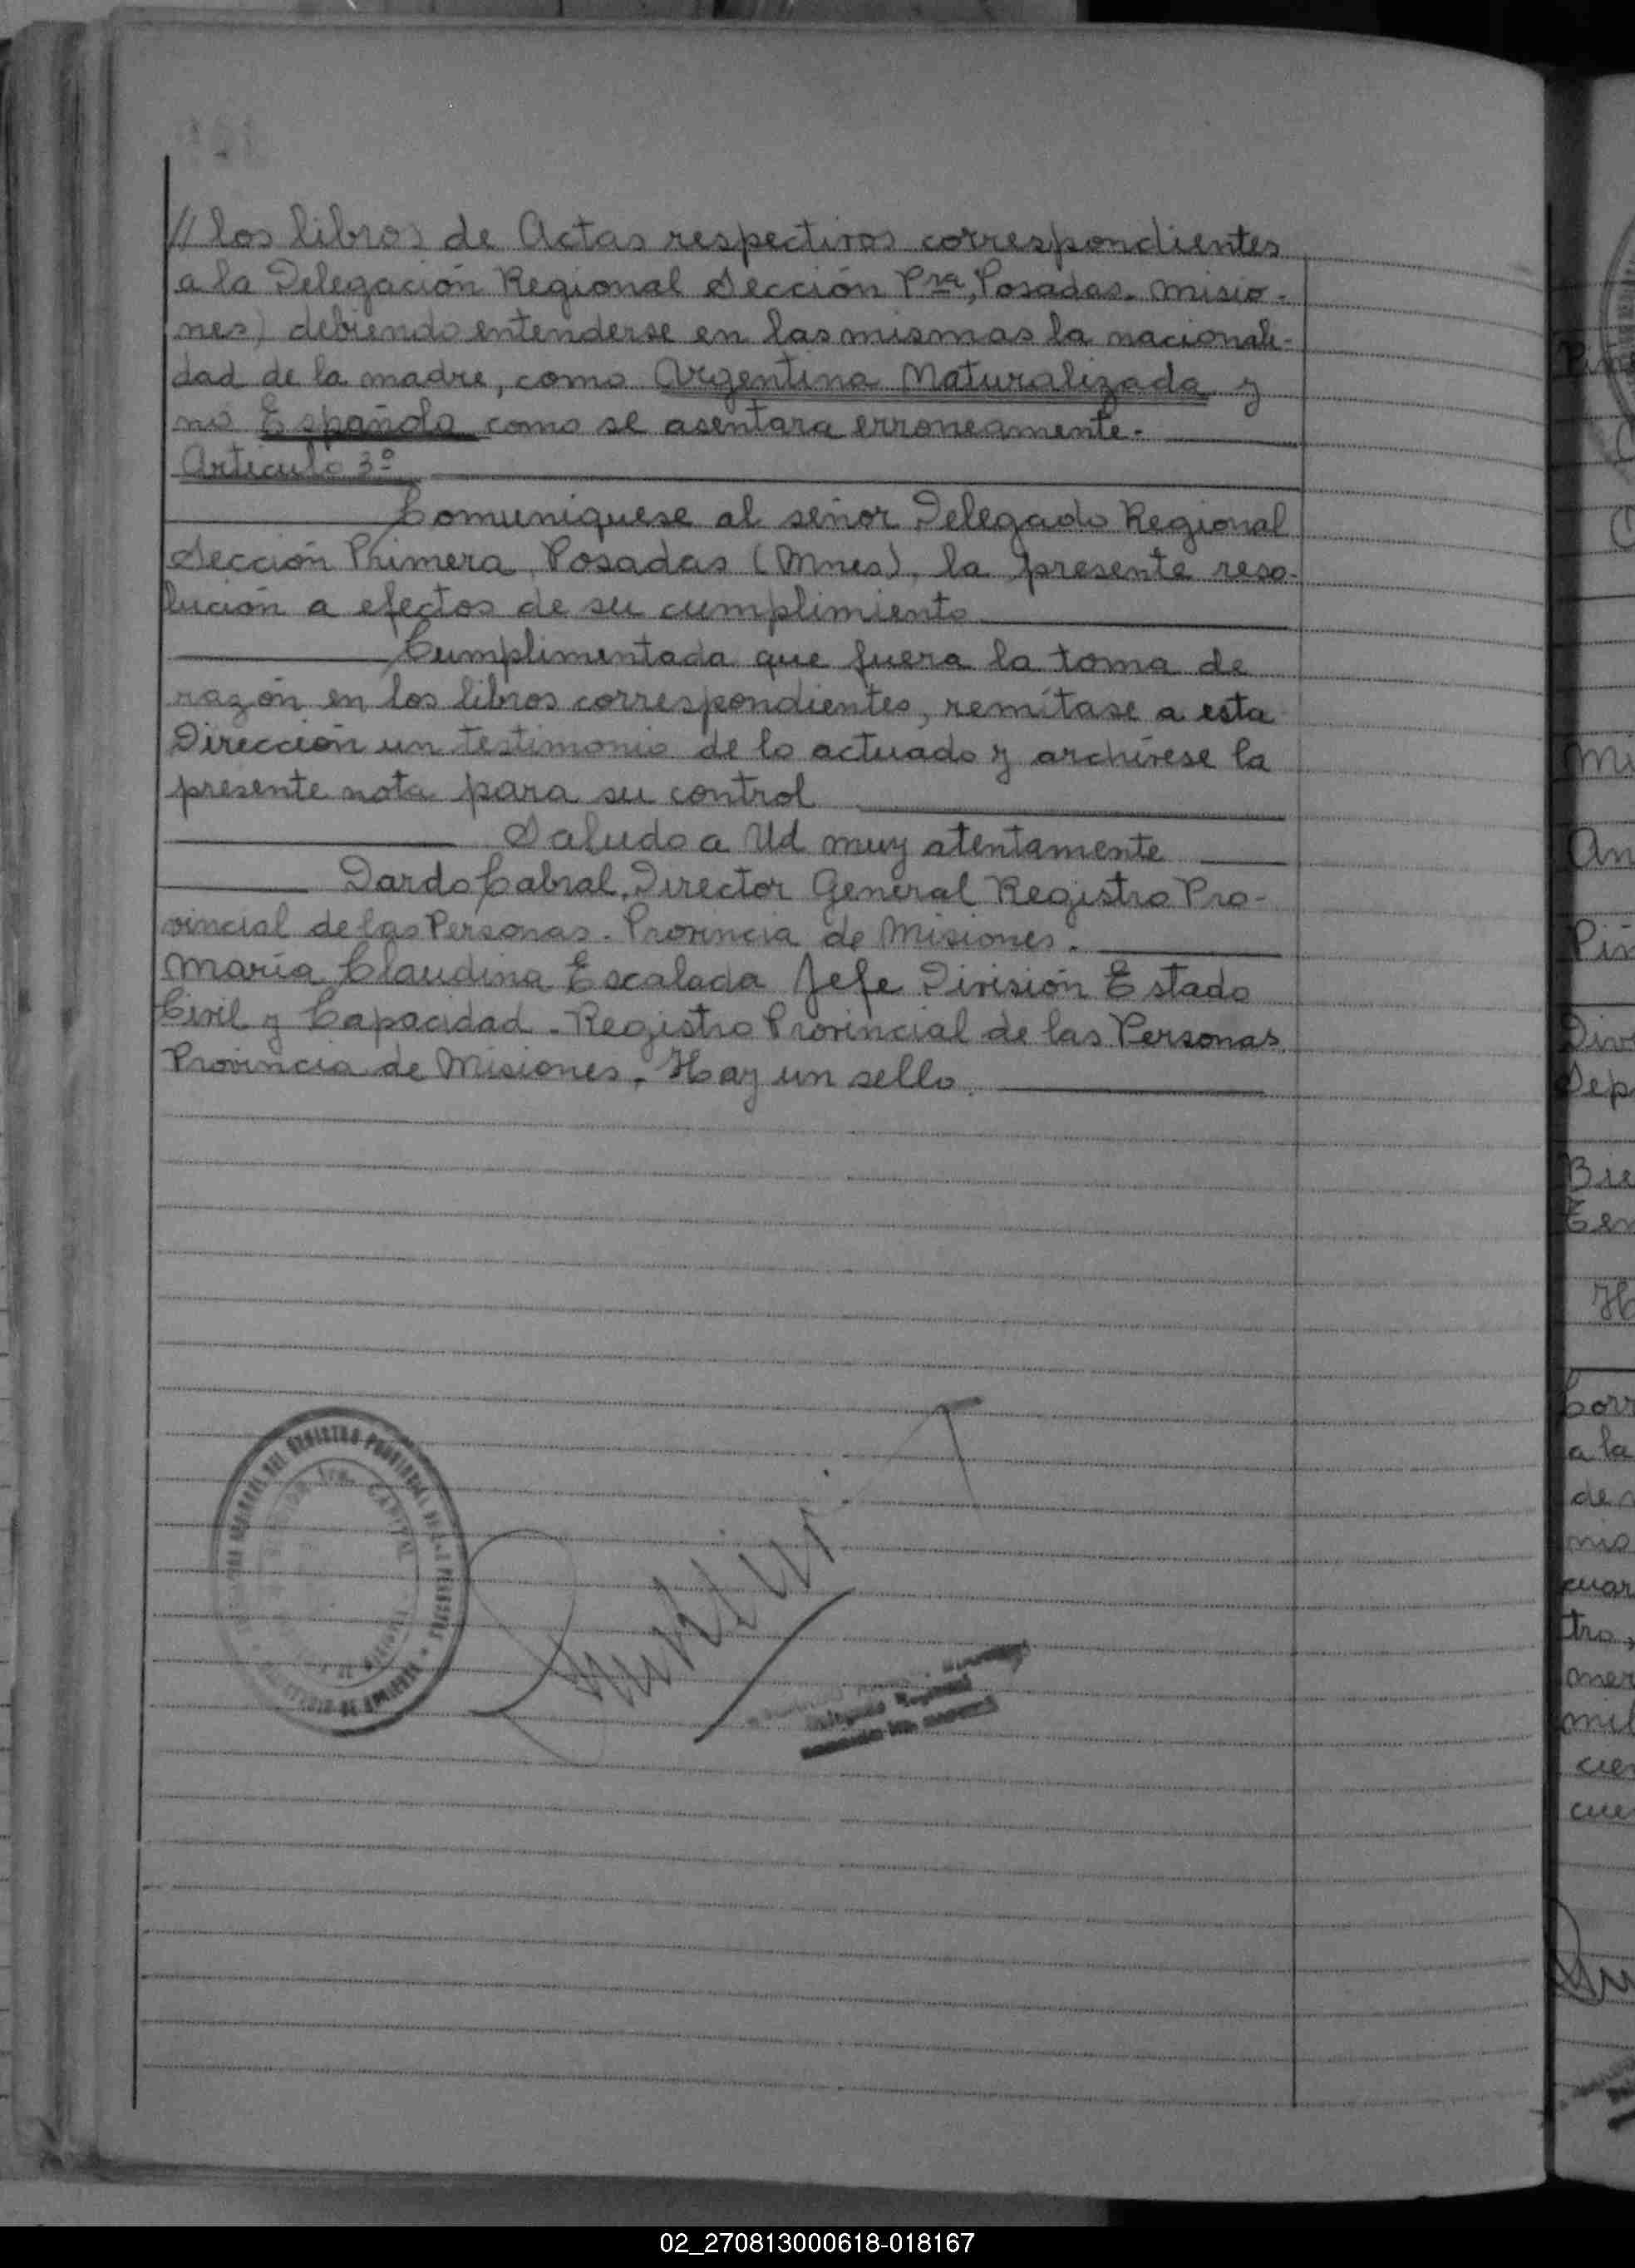 // los libros de Actas respectivos correspondientes
a la Delegación Regional Sección Pra, Posadas. Misio-
nes) debiendo entenderse en las mismas la nacionali-
dad de la madre, como Argentina Naturalizada y
no Española como se asentara erroneamente.
Artículo 3º
Comuniquese al señor Delegado Regional
Sección Primera, Posadas (Mnes), la presente reso-
lución a efectos de su cumplimiento
Cumplimentada que fuera la toma de
razón en los libros correspondientes, remítase a esta
Dirección un testimonio de lo actuado y archívese la
presente nota para su control
Saludo a Ud muy atentamente
Dardo Cabral, Director General Registro Pro-
vincial de las Personas. Provincia de Misiones.
María Claudina Escalada Jefe División Estado
Civil y Capacidad. Registro Provincial de las Personas
Provincia de Misiones. Hay un sello.
REGISTRO PROVINCIAL DE LAS PERSONAS
CAPITAL
Delegado Regional
Pi
Mi
An
Piñ
Div
Dep
Bie
Ten
H
Corr
a la
de
mo
cuar
tro,
mer
mil
cie
cue
02_270813000618-018167